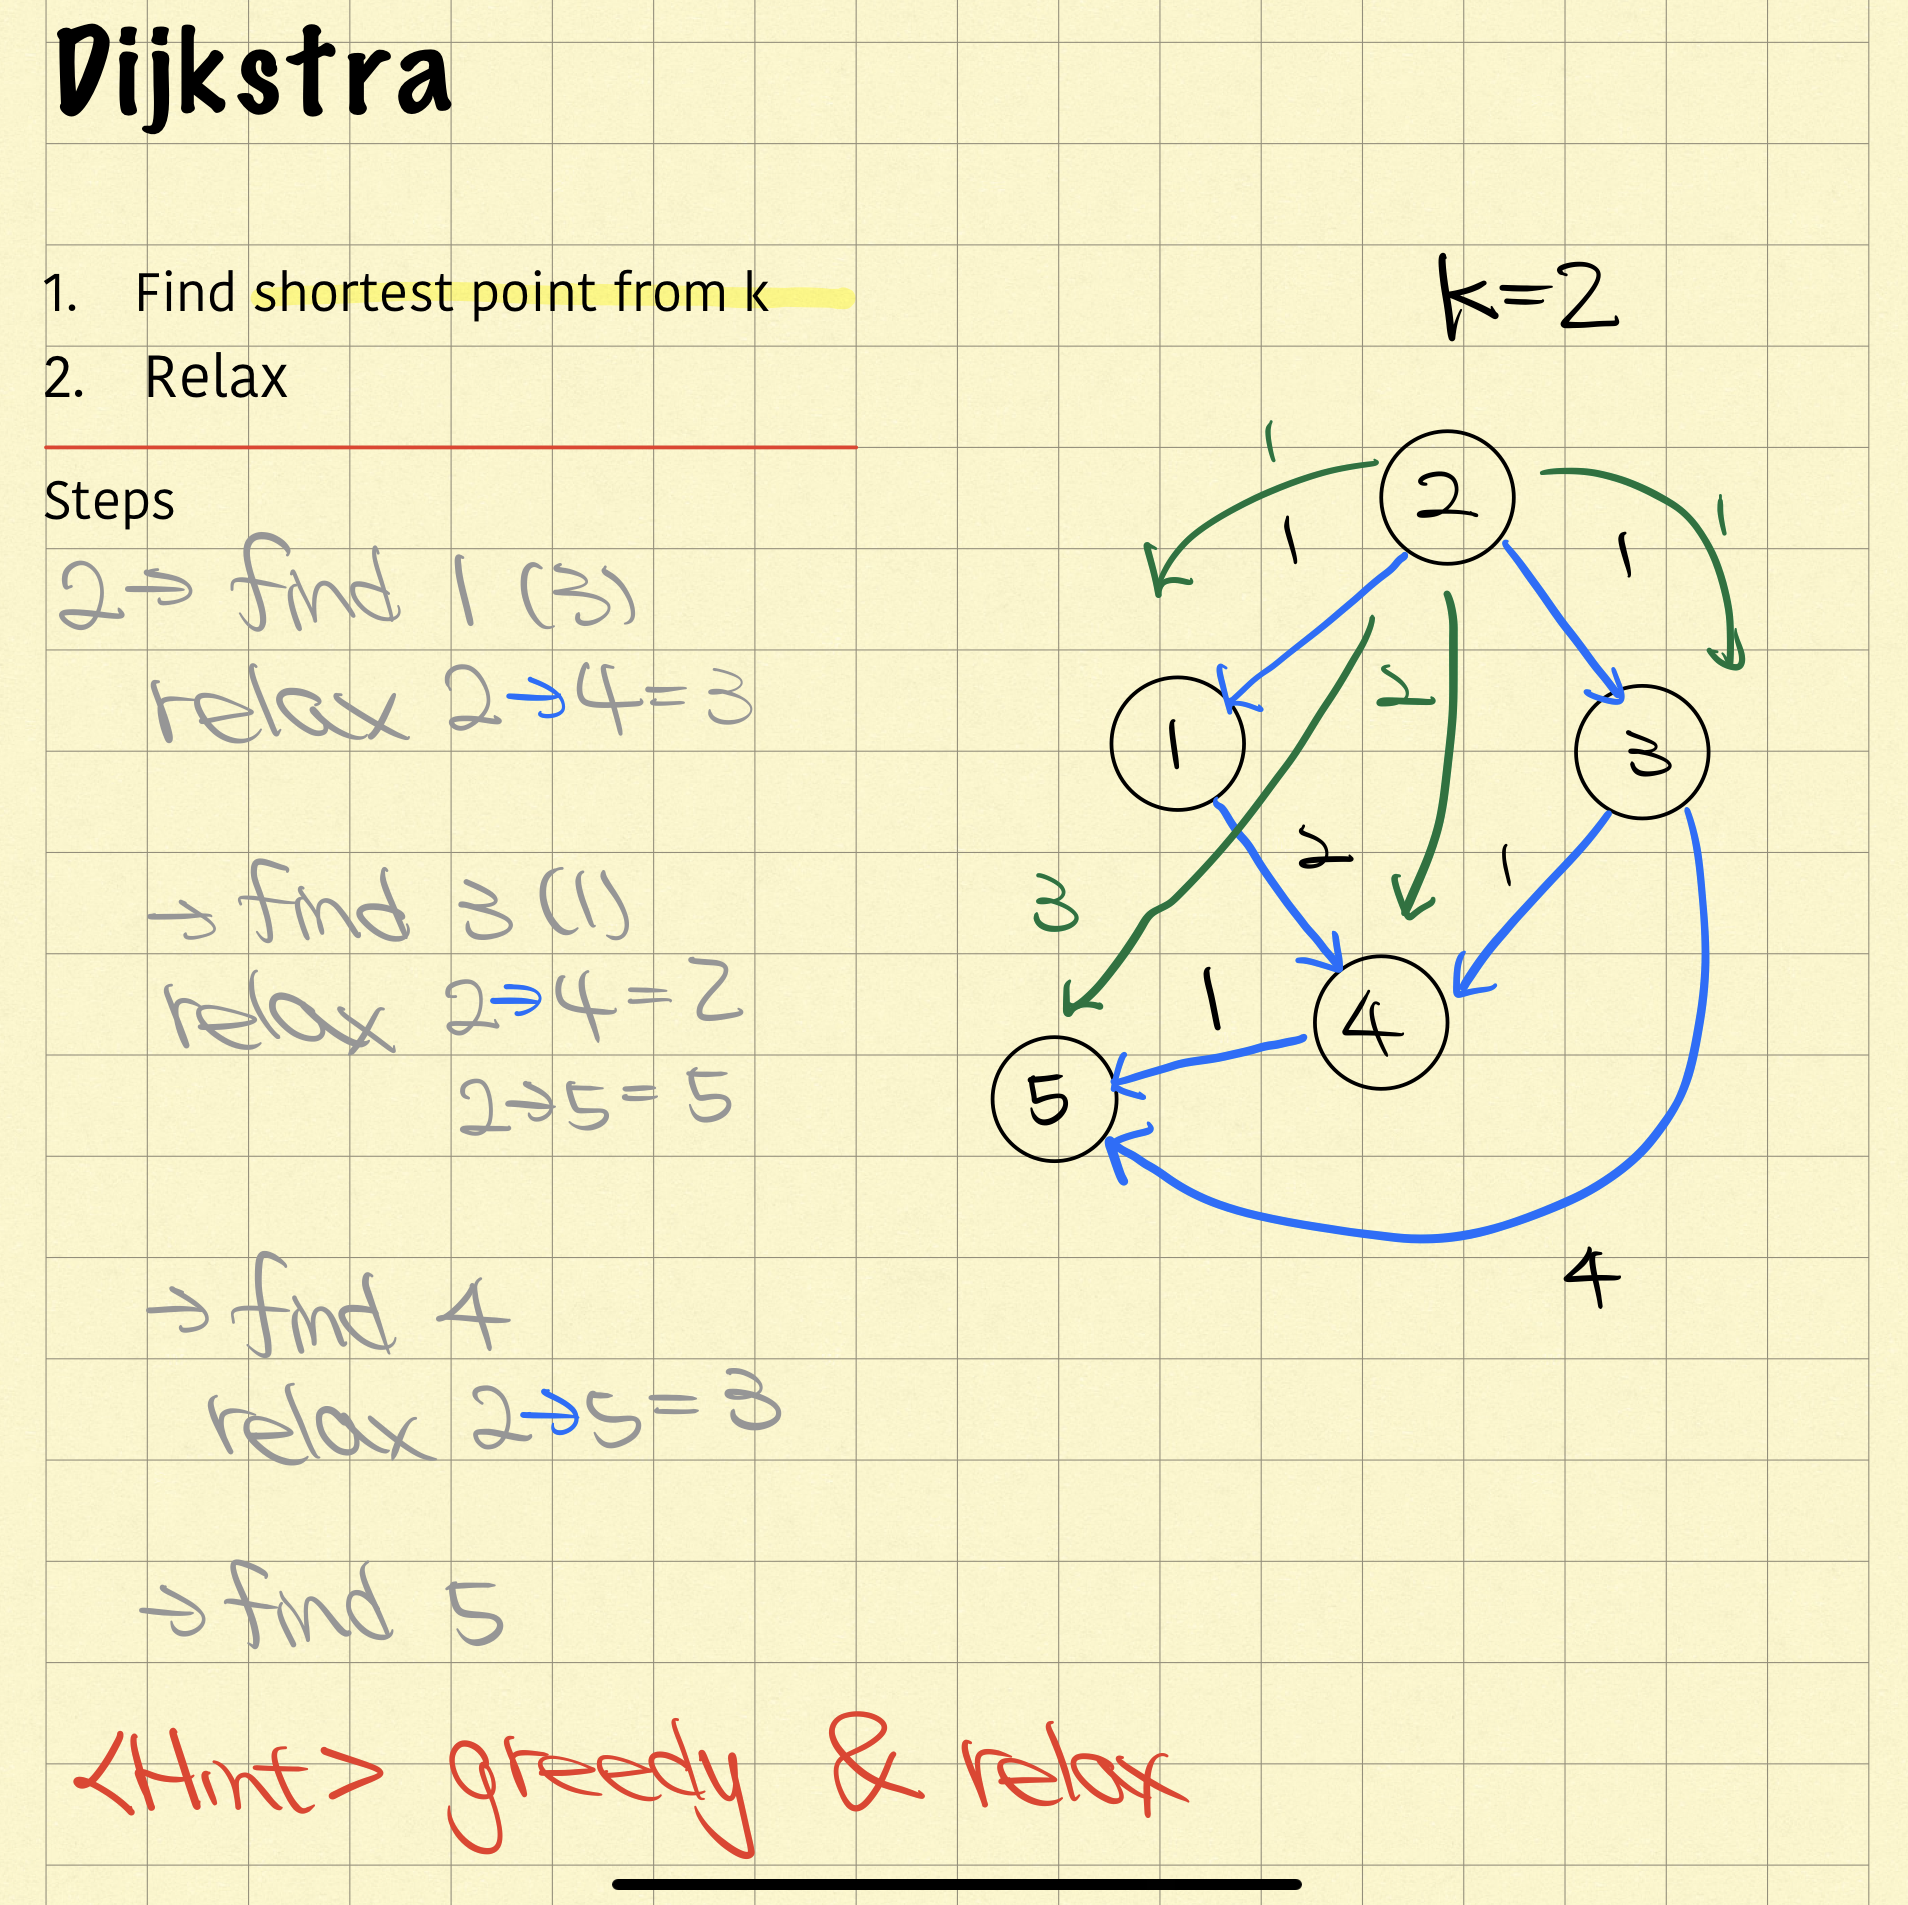 Dijkstra
1. Find shortest point from k
2. Relax
Steps
2→ find 1 (3)
relax 2→4=3
→ find 3 (1)
relax 2→4=2
2→5=5
→ find 4
relax 2→5=3
→ find 5
<Hint> greedy & relax
k=2
1
2
1
1
1
2
1
3
2
1
3
1
4
5
4